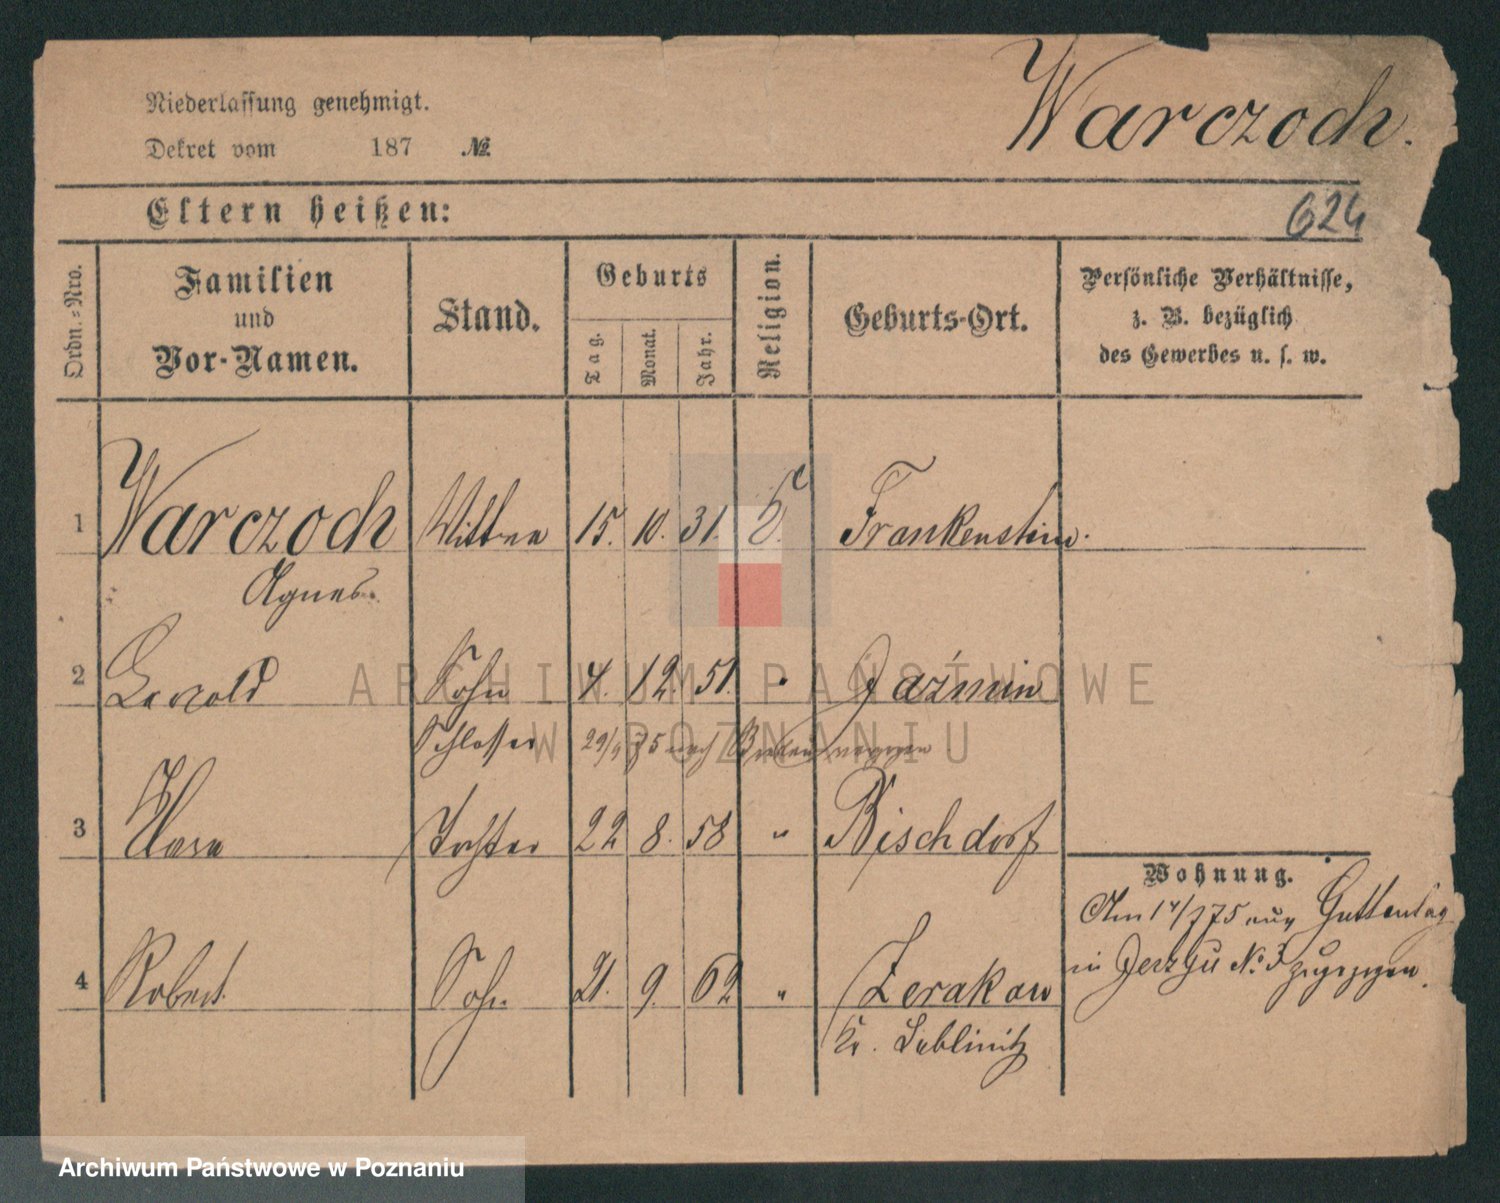 Warczoch.
Niederlassung genehmigt.
Dekret vom 187 №
624
Eltern heißen:
Ordn.-Nro.
Familien
und
Vor-Namen.
Stand.
Geburts
Tag.
Monat.
Jahr.
Religion.
Geburts-Ort.
Persönliche Verhältnisse,
z. B. bezüglich
des Gewerbes u. s. w.
1 Warczoch Wittwe 15. 10. 31. Frankenstein.
Agnes
2 Sohn 4. 12. 51. " Jaźmin
Schlosser 29/9 75 nach Breslau verzogen
3 Clara Tochter 22 8. 58 " Bischdorf
Wohnung.
Am 14/7 75 aus Guttentag
in Jerzyu No 3 zugezogen.
4 Robert Sohn 21. 9. 62 " Zerakow
Kr. Lublinitz
ARCHIWUM PAŃSTWOWE
W POZNANIU
Archiwum Państwowe w Poznaniu